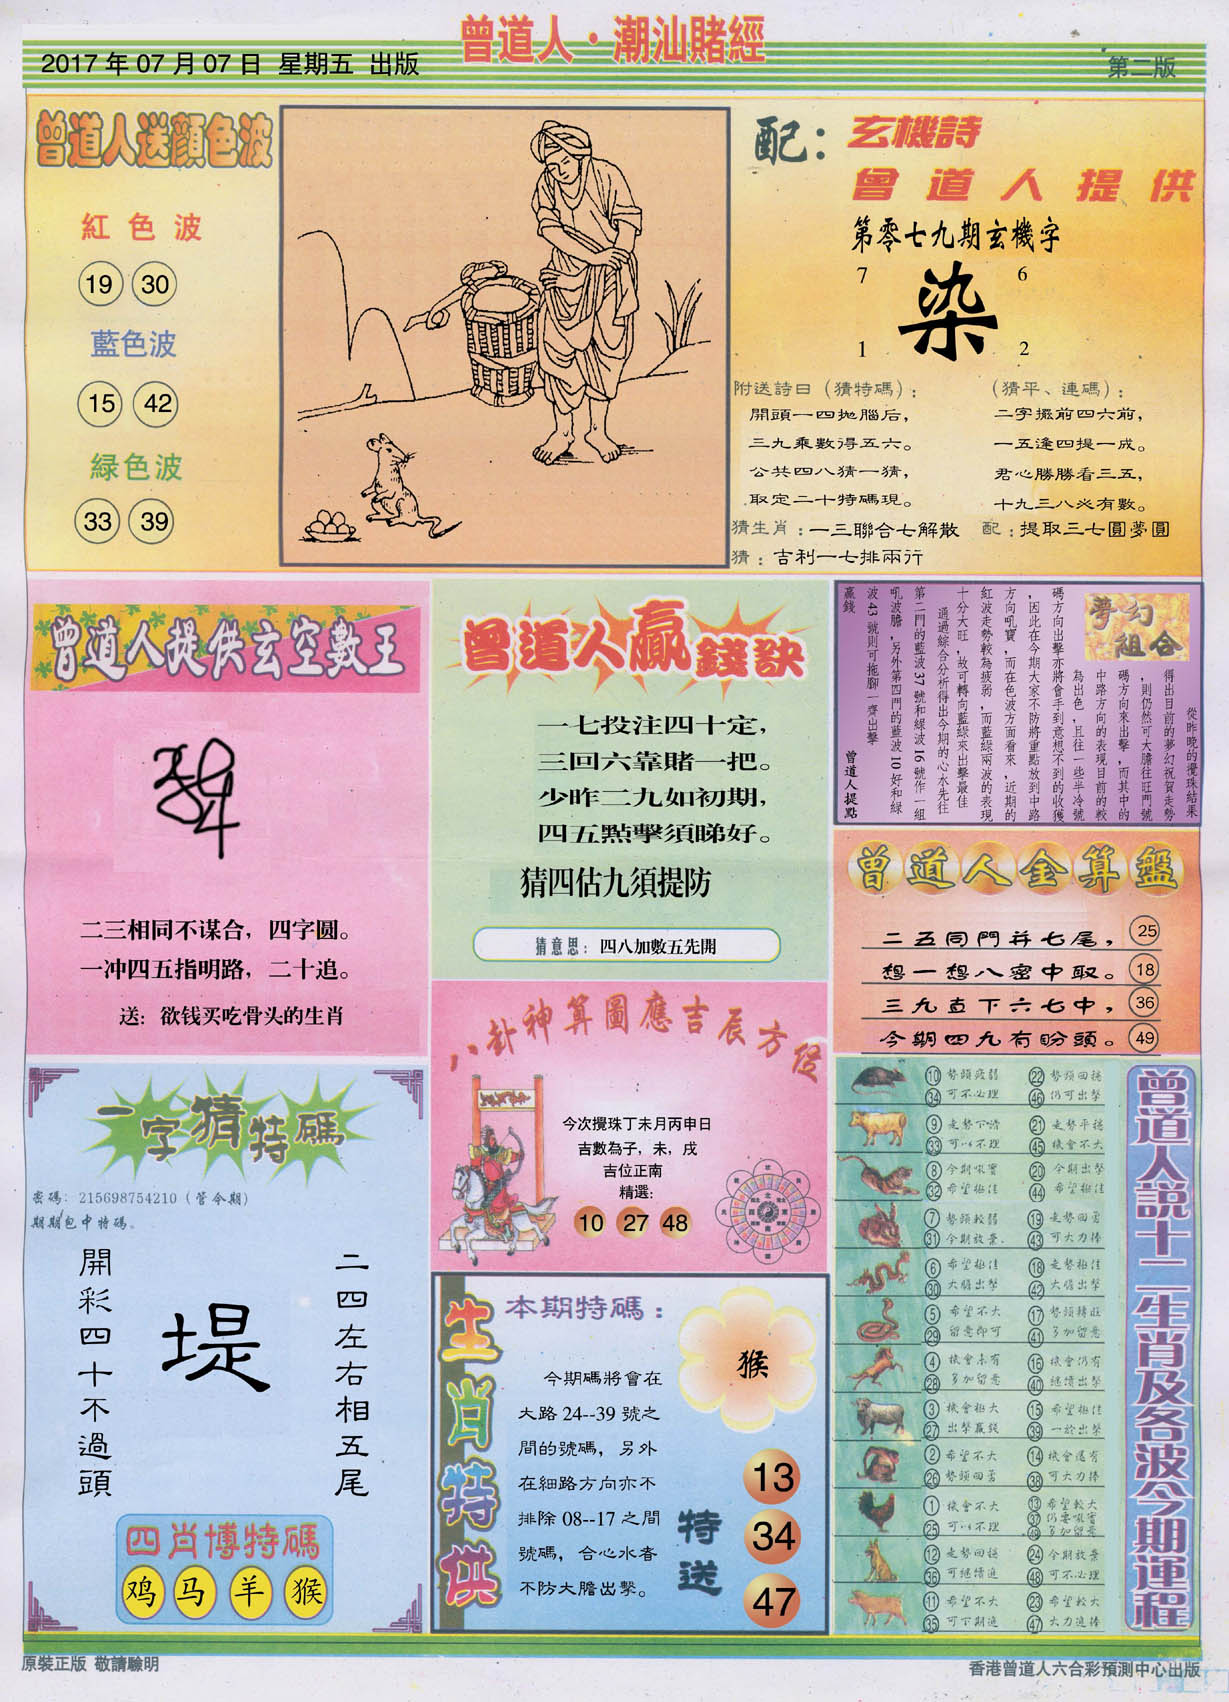 曾道人·潮汕賭經
2017年07月07日 星期五 出版
第二版
曾道人送顏色波
紅色波
19 30
藍色波
15 42
緑色波
33 39
配：
玄機詩
曾道人提供
第零七九期玄機字
7 6
染
1 2
附送詩曰（猜特碼）：
開頭一四拋腦后，
三九乘數得五六。
公共四八猜一猜，
取定二十特碼現。
（猜平、連碼）：
二字擺前四六前，
一五逢四提一成。
君心勝勝看三五，
十九三八必有數。
猜生肖：一三聯合七解散
配：提取三七圓夢圓
猜：吉利一七排兩行
曾道人提供玄空數王
二三相同不谋合，四字圆。
一冲四五指明路，二十追。
送：欲钱买吃骨头的生肖
曾道人贏錢訣
一七投注四十定，
三回六靠賭一把。
少昨二九如初期，
四五點擊須睇好。
猜四估九須提防
猜意思：四八加數五先開
夢幻
組合
從昨晚的攪珠結果
得出目前的夢幻祝賀走勢
，則仍然可大膽往旺門號
碼方向來出擊，而其中的
中路方向的表現目前的較
為出色，且往一些半冷號
碼方向出擊亦將會手到意想不到的收獲
，因此在今期大家不防將重點放到中路
方向吼寶，而在色波方面看來，近期的
紅波走勢較為疲弱，而藍綠兩波的表現
十分大旺，故可轉向藍綠來出擊最佳
通過綜合分析得出今期的心水先往
第二門的藍波37號和綠波16號作一組
吼波膽，另外第四門的藍波10好和綠
波43號則可拖腳一齊出擊
贏錢
曾道人提點
曾道人金算盤
二五同門并七尾， 25
想一想八密中取。 18
三九直下六七中， 36
今期四九有盼頭。 49
八卦神算圖應吉辰方位
今次攪珠丁未月丙申日
吉數為子，未，戌
吉位正南
精選：
10 27 48
一字猜特碼
密碼：215698754210（管令期）
期期包中特碼。
開彩四十不過頭
堤
二四左右相五尾
四肖博特碼
鸡 马 羊 猴
生肖特供
本期特碼：
猴
今期碼將會在
大路24--39號之
間的號碼，另外
在細路方向亦不
排除08--17之間
號碼，合心水者
不防大膽出擊。
特送
13
34
47
曾道人説十二生肖及各波今期運程
10 勢頭疲弱 22 勢頭回穩
34 可不必理 46 仍可出擊
9 走勢下滑 21 走勢平穩
33 可以不理 45 機會不大
8 今期吼寶 20 今期出擊
32 希望極佳 44 希望極佳
7 勢頭較弱 19 走勢回勇
31 今期放棄 43 可大力捧
6 希望極佳 18 走勢極佳
30 大膽出擊 42 大膽出擊
5 希望不大 17 勢頭轉旺
29 留意即可 41 多加留意
4 機會未有 16 機會仍有
28 多加留意 40 繼續出擊
3 機會極大 15 希望極佳
27 出擊贏錢 39 一於出擊
2 希望不大 14 機會還有
26 勢頭回勇 38 可大力捧
1 機會不大 13 希望較大
25 可以不理 37 仍要吼寶
49 多加留意
12 走勢回穩 24 今期放棄
36 可繼續追 48 可不必理
11 希望不大 23 希望較大
35 可下期追 47 大力追捧
原裝正版 敬請驗明
香港曾道人六合彩預測中心出版